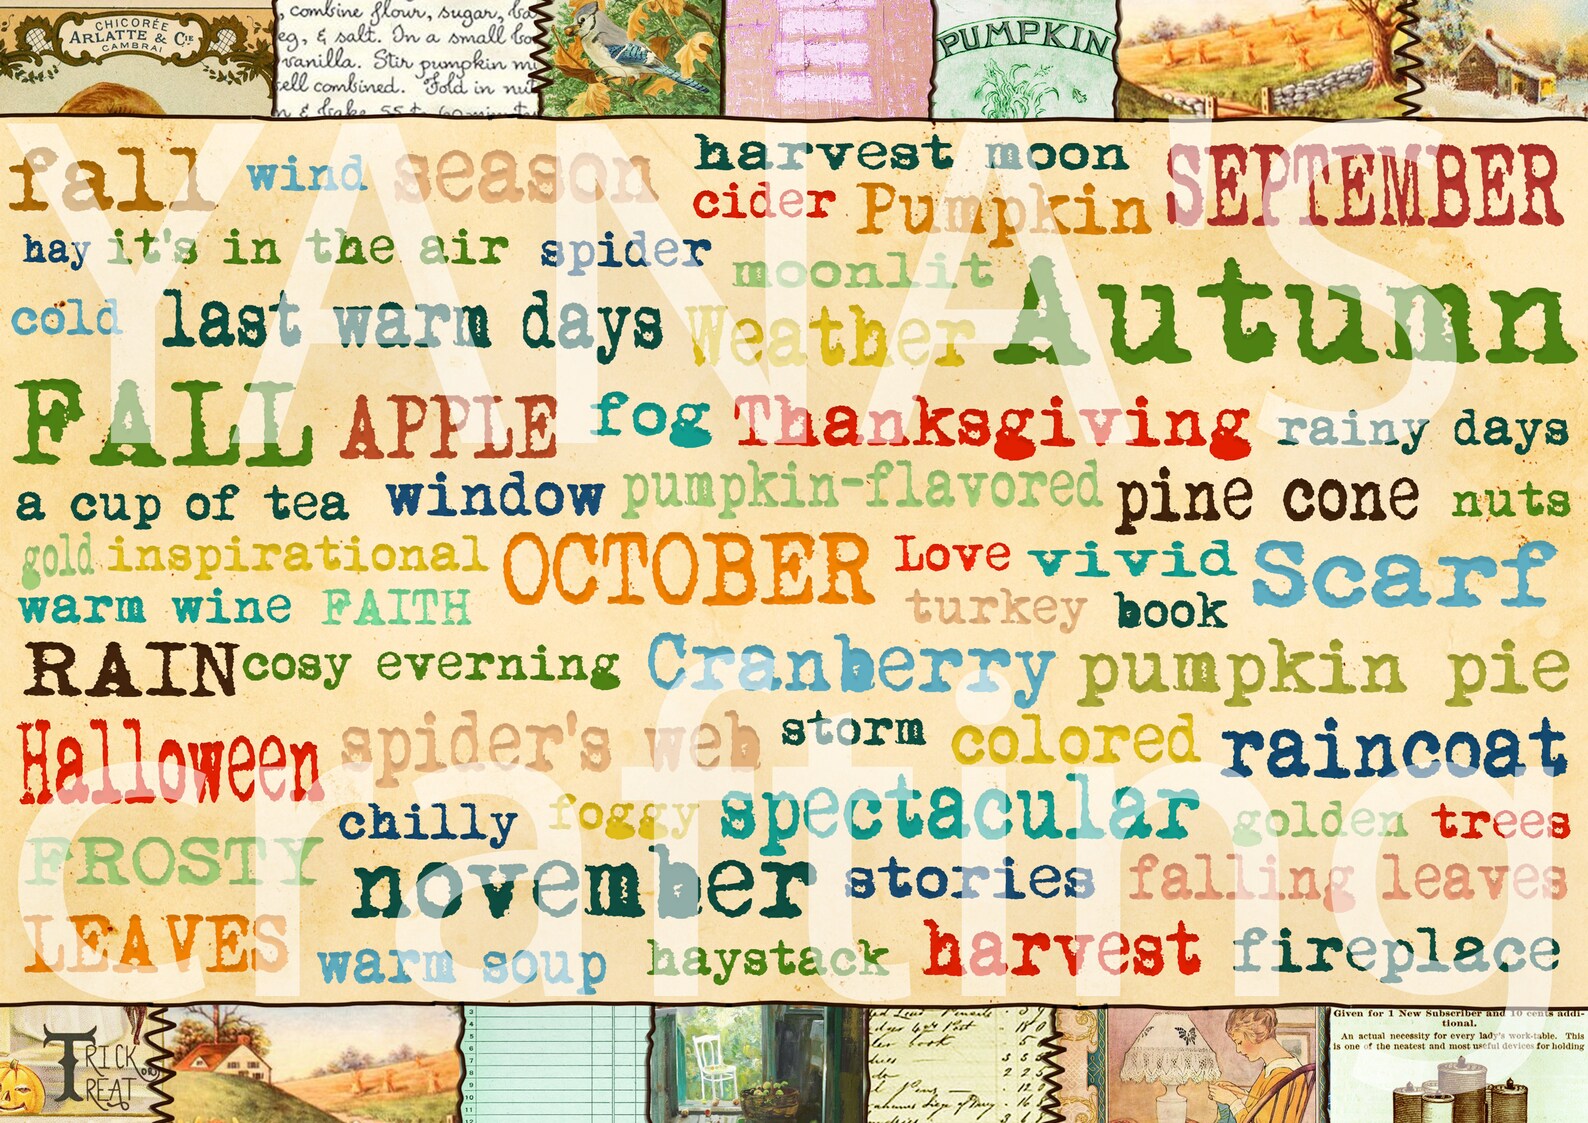 CHICORÉE
ARLATTE & CIE
CAMBRAI
combine flour, sugar,
& salt. In a small
vanilla. Stir pumpkin
well combined. Fold in
PUMPKIN
fall wind season harvest moon SEPTEMBER
cider Pumpkin
hay it's in the air spider moonlit
cold last warm days Weather Autumn
FALL APPLE fog Thanksgiving rainy days
a cup of tea window pumpkin-flavored pine cone nuts
gold inspirational OCTOBER Love vivid Scarf
warm wine FAITH turkey book
RAIN cosy everning Cranberry pumpkin pie
Halloween spider's web storm colored raincoat
chilly foggy spectacular golden trees
FROSTY november stories falling leaves
LEAVES warm soup haystack harvest fireplace
YANA'S
crafting
TRICK
OR
TREAT
Given for 1 New Subscriber and 10 cents addi-
tional.
An actual necessity for every lady's work-table. This
is one of the neatest and most useful devices for holding